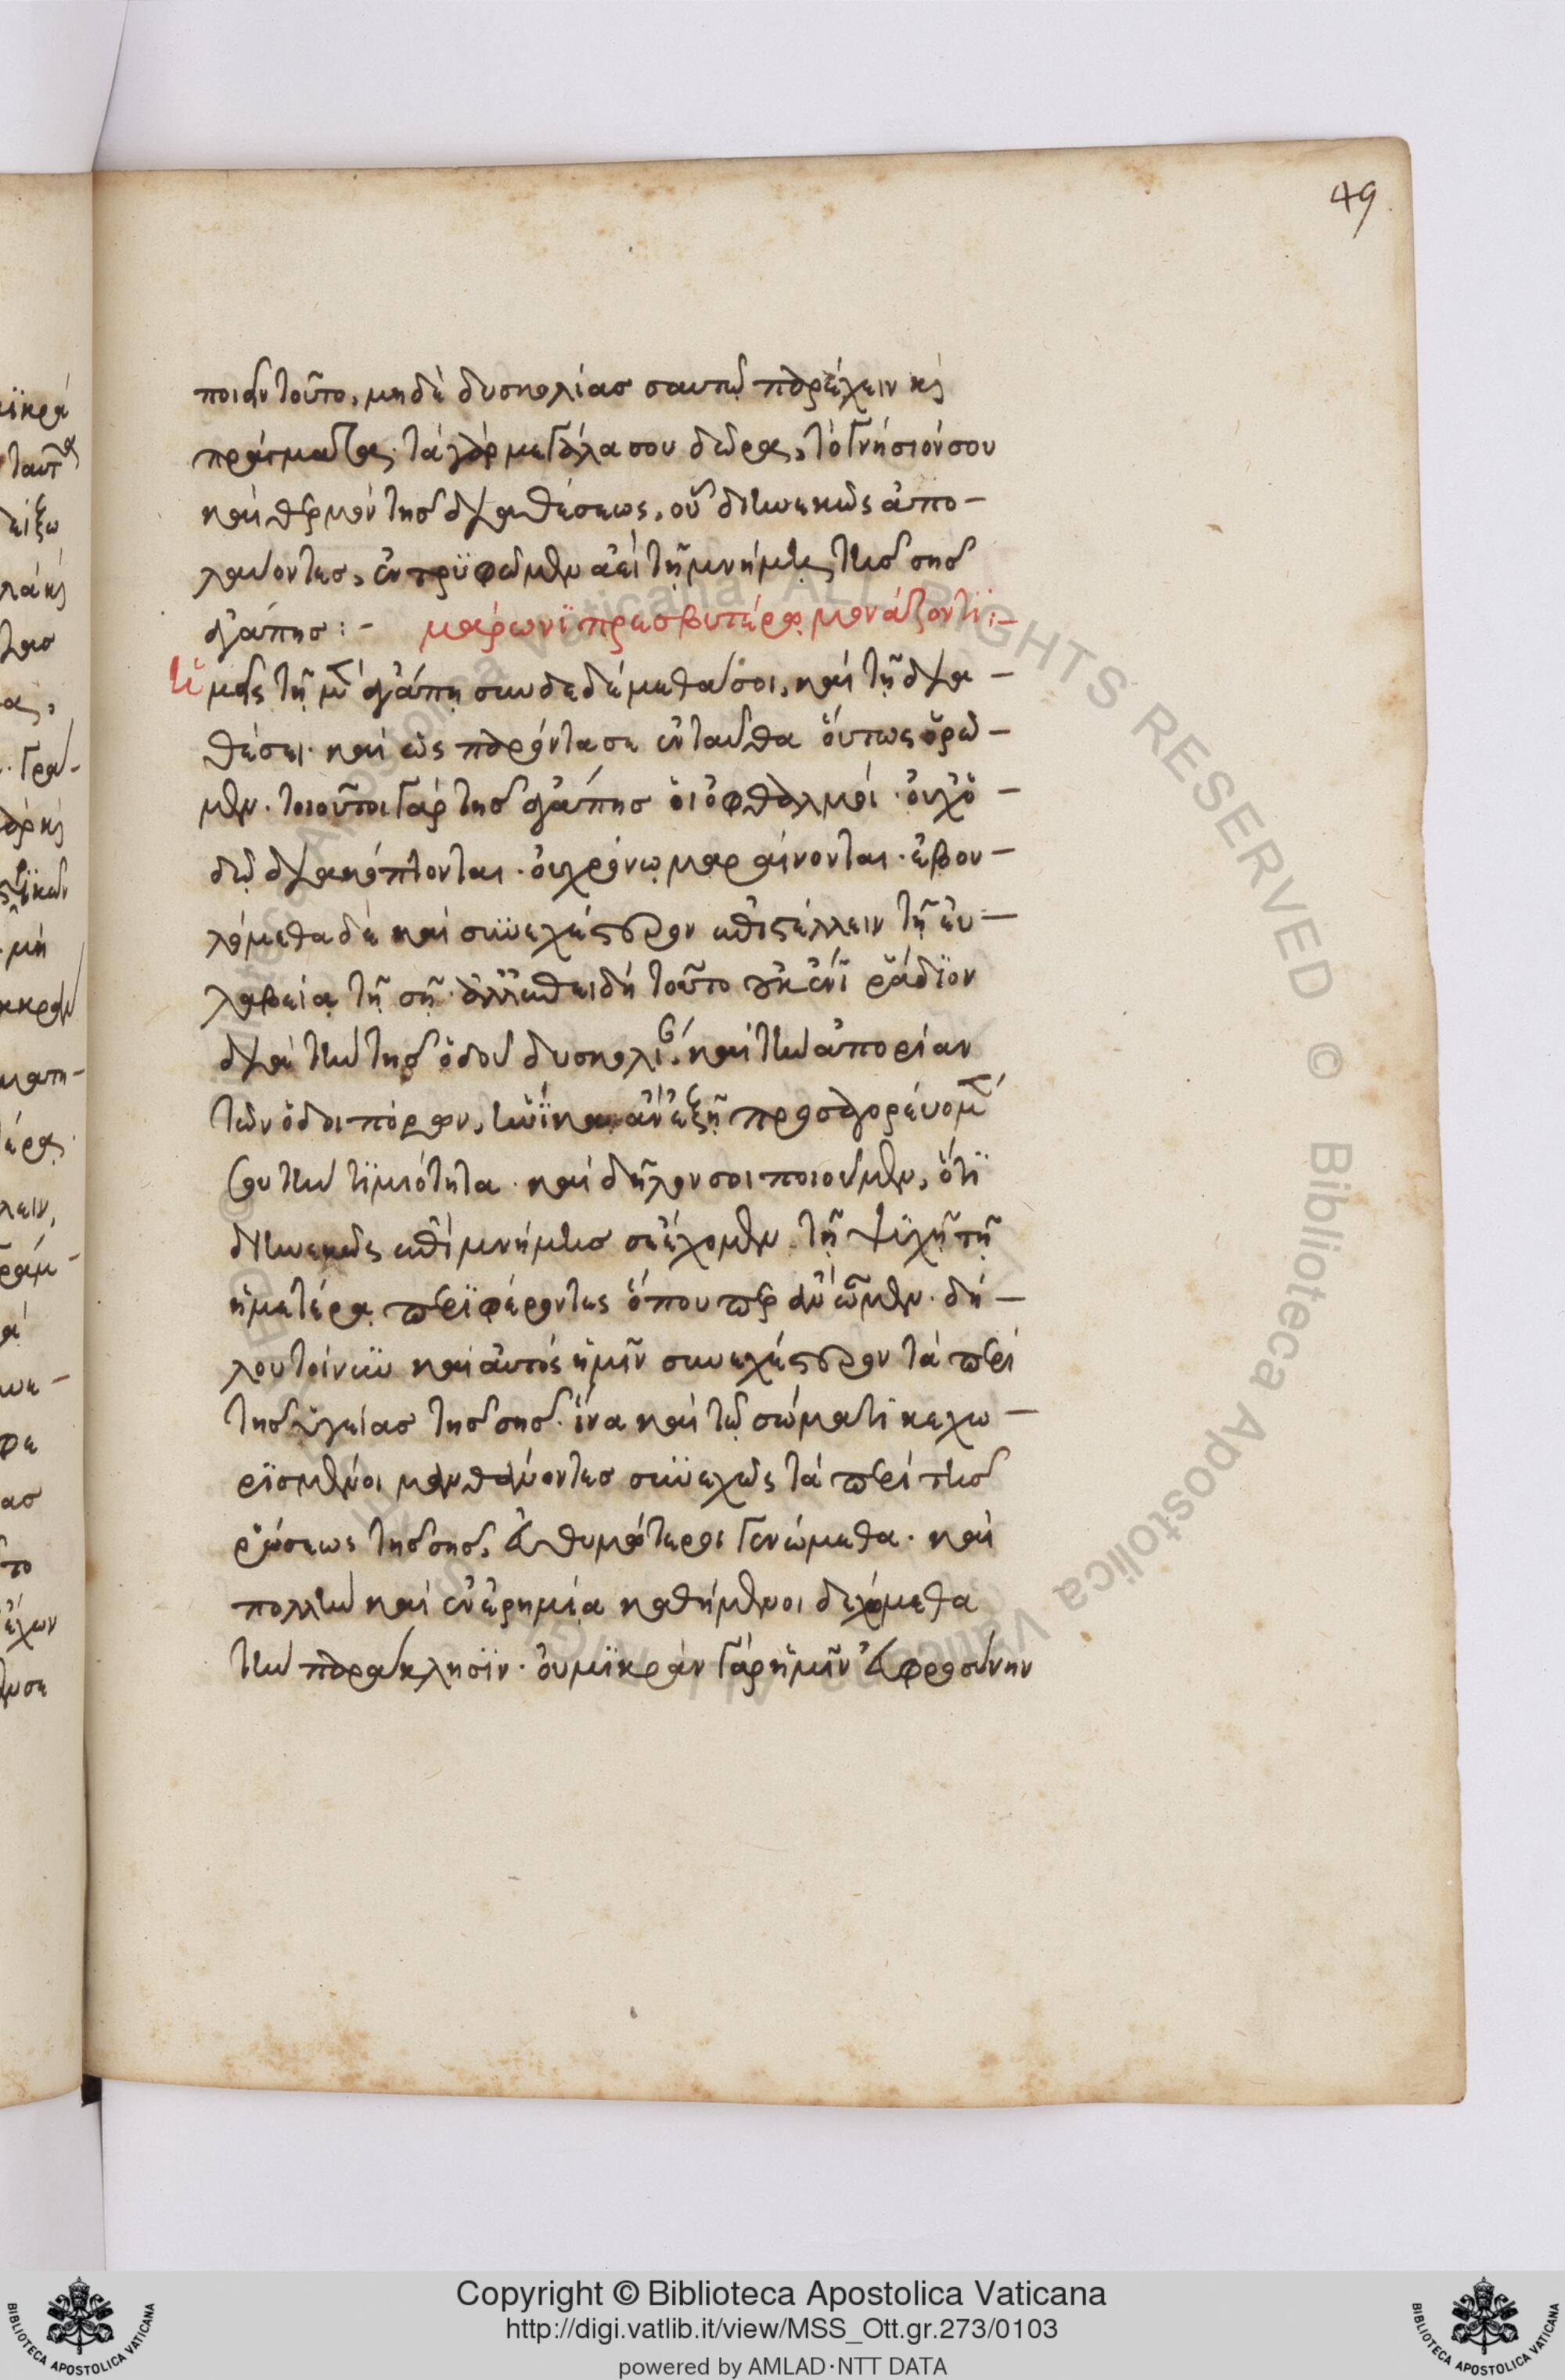 49
ποιεῖν τοῦτο, μηδὲ δυσκολίας σαυτῷ παρέχειν καὶ
πράγματα· τὰ γὰρ μεγάλα σου δῶρα, τὸ γνήσιόν σου
καὶ θερμὸν τῆς διαθέσεως, οὗ διηνεκῶς ἀπο-
λαύοντες, ἐντρυφῶμεν ἀεὶ τῇ μνήμῃ τῆς σῆς
ἀγάπης :-    μάρωνι πρεσβυτέρῳ μονάζοντι :-
Ἡμεῖς τῇ μὲν ἀγάπῃ συνδεδέμεθά σοι, καὶ τῇ δια-
θέσει· καὶ ὡς παρόντα σε ἐνταῦθα οὕτως ὁρῶ-
μεν. τοιοῦτοι γὰρ τῆς ἀγάπης οἱ ὀφθαλμοί· οὐχ ὁ-
δῷ διακόπτονται· οὐ χρόνῳ μαραίνονται· ἐβου-
λόμεθα δὲ καὶ συνεχέστερον ἐπιστέλλειν τῇ εὐ-
λαβείᾳ τῇ σῇ· ἀλλ' ἐπειδὴ τοῦτο οὐκ ἔνι ῥάδιον
διὰ τὴν τῆς ὁδοῦ δυσκολίαν, καὶ τὴν ἀπορίαν
τῶν ὁδοιπόρων, ἡνίκα ἂν ἐξῇ προσαγορεύομέν
σου τὴν τιμιότητα· καὶ δῆλόν σοι ποιοῦμεν, ὅτι
διηνεκῶς ἐπὶ μνήμης σε ἔχομεν. τῇ ψυχῇ τῇ
ἡμετέρᾳ περιφέροντες ὅπου περ ἂν ὦμεν· δή-
λου τοίνυν καὶ αὐτὸς ἡμῖν συνεχέστερον τὰ περὶ
τῆς ὑγείας τῆς σῆς· ἵνα καὶ τῷ σώματι κεχω-
ρισμένοι μανθάνοντες συνεχῶς τὰ περὶ τῆς
ῥώσεως τῆς σῆς, εὐθυμότεροι γενώμεθα· καὶ
πολλὴν καὶ ἐν ἐρημίᾳ καθήμενοι δεχώμεθα
τὴν παράκλησιν· οὐ μικρὰν γὰρ ἡμῖν εὐφροσύνην
Copyright © Biblioteca Apostolica Vaticana
http://digi.vatlib.it/view/MSS_Ott.gr.273/0103
powered by AMLAD·NTT DATA